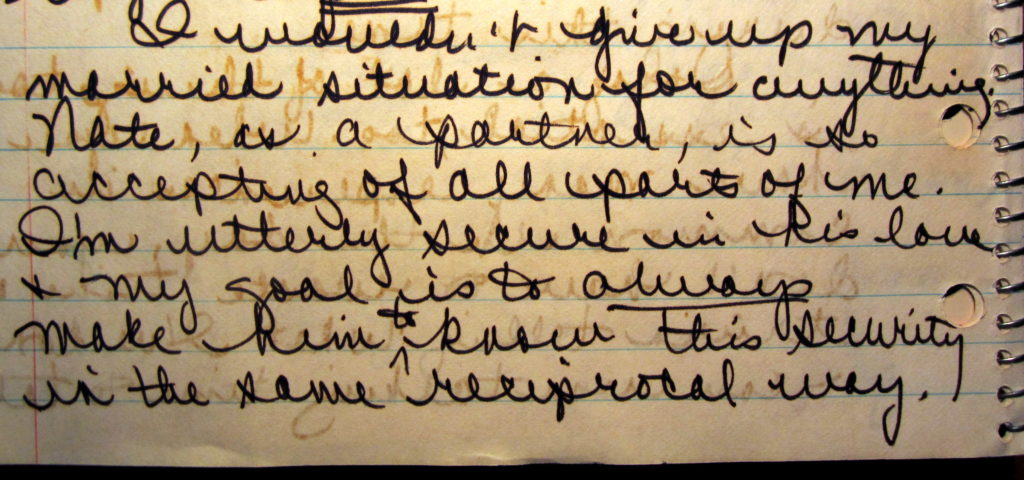 I wouldn't give up my
married situation for anything.
Nate, as a partner, is so
accepting of all parts of me.
I'm utterly secure in his love
& my goal is to always
make him to know this security
in the same reciprocal way.